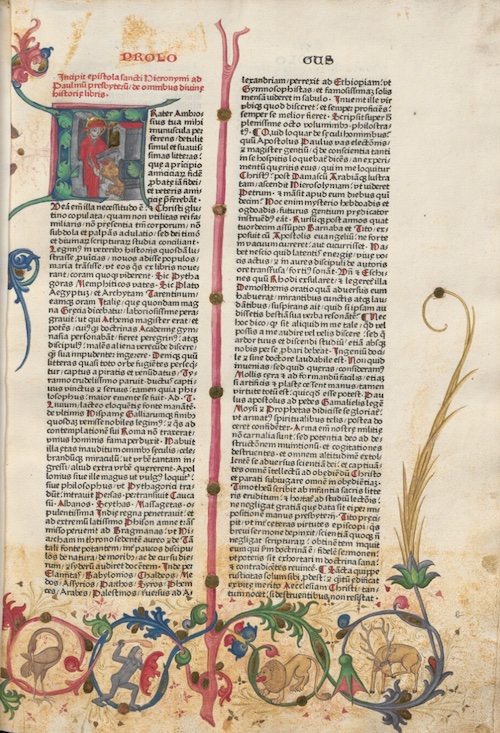 PROLO GUS
Incipit epistola sancti Hieronymi ad
Paulinum presbyterū: de omnibus divinę
historię libris.
Frater Ambro
sius tua mihi
munuscula per
ferens/detulit
simul et suavis
simas litteras:
que a principio
amiciciaʒ fidē
ꝓbatę iā fidei/
et veteris ami
cicię pferebāt.
Vea em̄ illa necessitudo ē: ⁊ Christi glu
tino copulata/quam non utilitas rei fa
miliaris/nō presentia tm̄ corporum/nō
subdola et palpās adulatio/sed dei timor
et divinaʒ scripturaʒ studia conciliant.
Legimꝰ in veteribꝰ historiis quosdā lu
strasse ꝓvīcias/novos adisse populos/
maria trāsisse: ut eos quos ex libris nove
rant: coram quoqʒ viderent. Sic Pytha
goras Memphiticos vates: Sic Plato
Aegyptū/et Archytam Tarentinum/
eamqʒ oram Italię/que quondam mag
na Grecia dicebatur: laboriosissime pera
gravit: ut qui Athenis magister erat et
potēs/cuiusqʒ doctrinas Academię gymna
sia personabāt: fieret peregrinus atqʒ
discipulus: malēs aliena verecūde discere/
q̄ sua impudenter ingerere. Deniqʒ quū
litteras quasi toto orbe fugiētes persequi
tur: captus a piratis et venundatus/Ty
ranno crudelissimo paruit: ductus capti
vus/vinctus et servus: tamen quia phi
losophus: maior emente se fuit. Ad T.
Livium/lacteo eloquētię fonte manātē
de ultimis Hispanię Galliarumqʒ finibꝰ
quosdaʒ venisse nobiles legimꝰ: ⁊ quos ad
contemplationē sui Roma nō traxerat:
unius hominis fama perduxit. Habuit
illa etas inauditum omnibꝰ seculis/cele
brandūqʒ miraculū: ut urbē tantam in
gressi/aliud extra urbē quererent. Apol
lonius sive ille magus ut vulgꝰ loquitˀ:
sive philosophus/ut Pythagorici tra
dūt: intravit Persas: pertransivit Cauca
sū: Albanos: Scythas: Massagetas: o
pulentissima Indię regna penetravit: et
ad extremū latissimo Phison amne trās
misso pervenit ad Bragmanas: ut Hi
archam in throno sedentē aureo ⁊ de Tā
tali fonte potantem/inter paucos discipu
los de natura/de moribꝰ/ac de cursu die
rum/⁊ syderū audiret docētem. Inde per
Elamitas/Babylonios/Chaldeos/Me
dos/Assyrios/Parthos/Syros/Phœni
ces/Arabes/Palestinos/reversus ad A
lexandriam/perrexit ad Ethiopiam: ut
Gymnosophistas/et famosissimaʒ solis
mensā videret in sabulo. Invenit ille vir
ubiqʒ quod disceret: et semper proficiēs:
semper se melior fieret. Scripsit super ħ
plenissime octo voluminibꝰ philostra
tus. Quid loquar de seculi hominibus?
quū Apostolus Paulus vas electiōis/
⁊ magister gentiū/qui de conscientia tanti
in se hospitis loquebaʈ dicēs/an experi
mentū queritis eius/qui in me loquitur
Christꝰ? post Damascū Arabiāqʒ lustra
tam/ascendit Hierosolymam/ut videret
Petrum. ⁊ māsit apud eum diebus qui
decim? Hoc enim mysterio hebdoadis ⁊
ogdoadis/futurus gentium predicator
instruēdꝰ erat. Rursūqʒ post annos quat
tuordecim assumpto Barnaba et Tito/ex
posuit cū Apostolis evangeliū: ne forte
in vacuum curreret/aut cucurrisset. Ha
bet nescio quid latentis energię/vive vo
cis actus/⁊ in aures discipuli de autoris
ore transfusa/fortiꝰ sonāt. Vn̄ ⁊ Eschi
nes quū Rhodi exularet/⁊ legereʈ illa
Demosthenis oratio quā adversus eum
habuerat/mirantibus cunctis atqʒ lau
dātibus/suspirans ait/quid si ipsam au
dissetis bestiā sua verba resonātē? Nec
hoc dico/qꝫ sit aliquid in me tale/qd̓ vel
possis a me audire vel velis discere: sed q̓
ardor tuus et discendi studiū/etiā absqʒ
nobis per se ꝓbari debeat. Ingeniū doci
le ⁊ sine doctore laudabile est. Non quid
invenias/sed quid queras/consideramꝰ.
Mollis cera ⁊ ad formandū facilis/etiam
si artificis ⁊ plastę cessent manus/tamen
virtute totū est: quicqd̓ esse potest. Pau
lus apostolus ad pedes Gamalielis legē
Moysi ⁊ Prophetas didicisse se gloriaʈ:
ut armatꝰ spiritualibus telis/postea do
ceret confidēter. Arma em̄ nostrę militię
nō carnalia sunt: sed potentia deo ad de
structionem munitionū: et cogitationes
destruentes: et omnem altitudinē extol
lentē se adversus scientiā dei: et captivā
tes omnē intellectū ad obediēdū Christo
et parati subiugare omnē inobedietiaʒ.
Timotheū scribit ab infantia sacris litte
ris eruditum: ⁊ hortaʈ ad studiū lectōis:
ne negligat gratiā que data sit ei per im
positionē manus presbyterij. Tito precę
pit: ut inter ceteras virtutes episcopi/quē
brevi sermone depinxit/scientiā quoqʒ nō
negligat scripturaʒ: obtinētem inquit
eum qui ī̄ doctrina ē: fidelē sermonem:
ut potens sit exhortari in doctrina sana:
⁊ contradicētes revincere. Sācta quippe
rusticitas solum sibi ꝓdest: ⁊ q̄tū edificat
ex vitę merito Aecclesiam Christi: tan
tum nocet/si destruentibus non resistat.